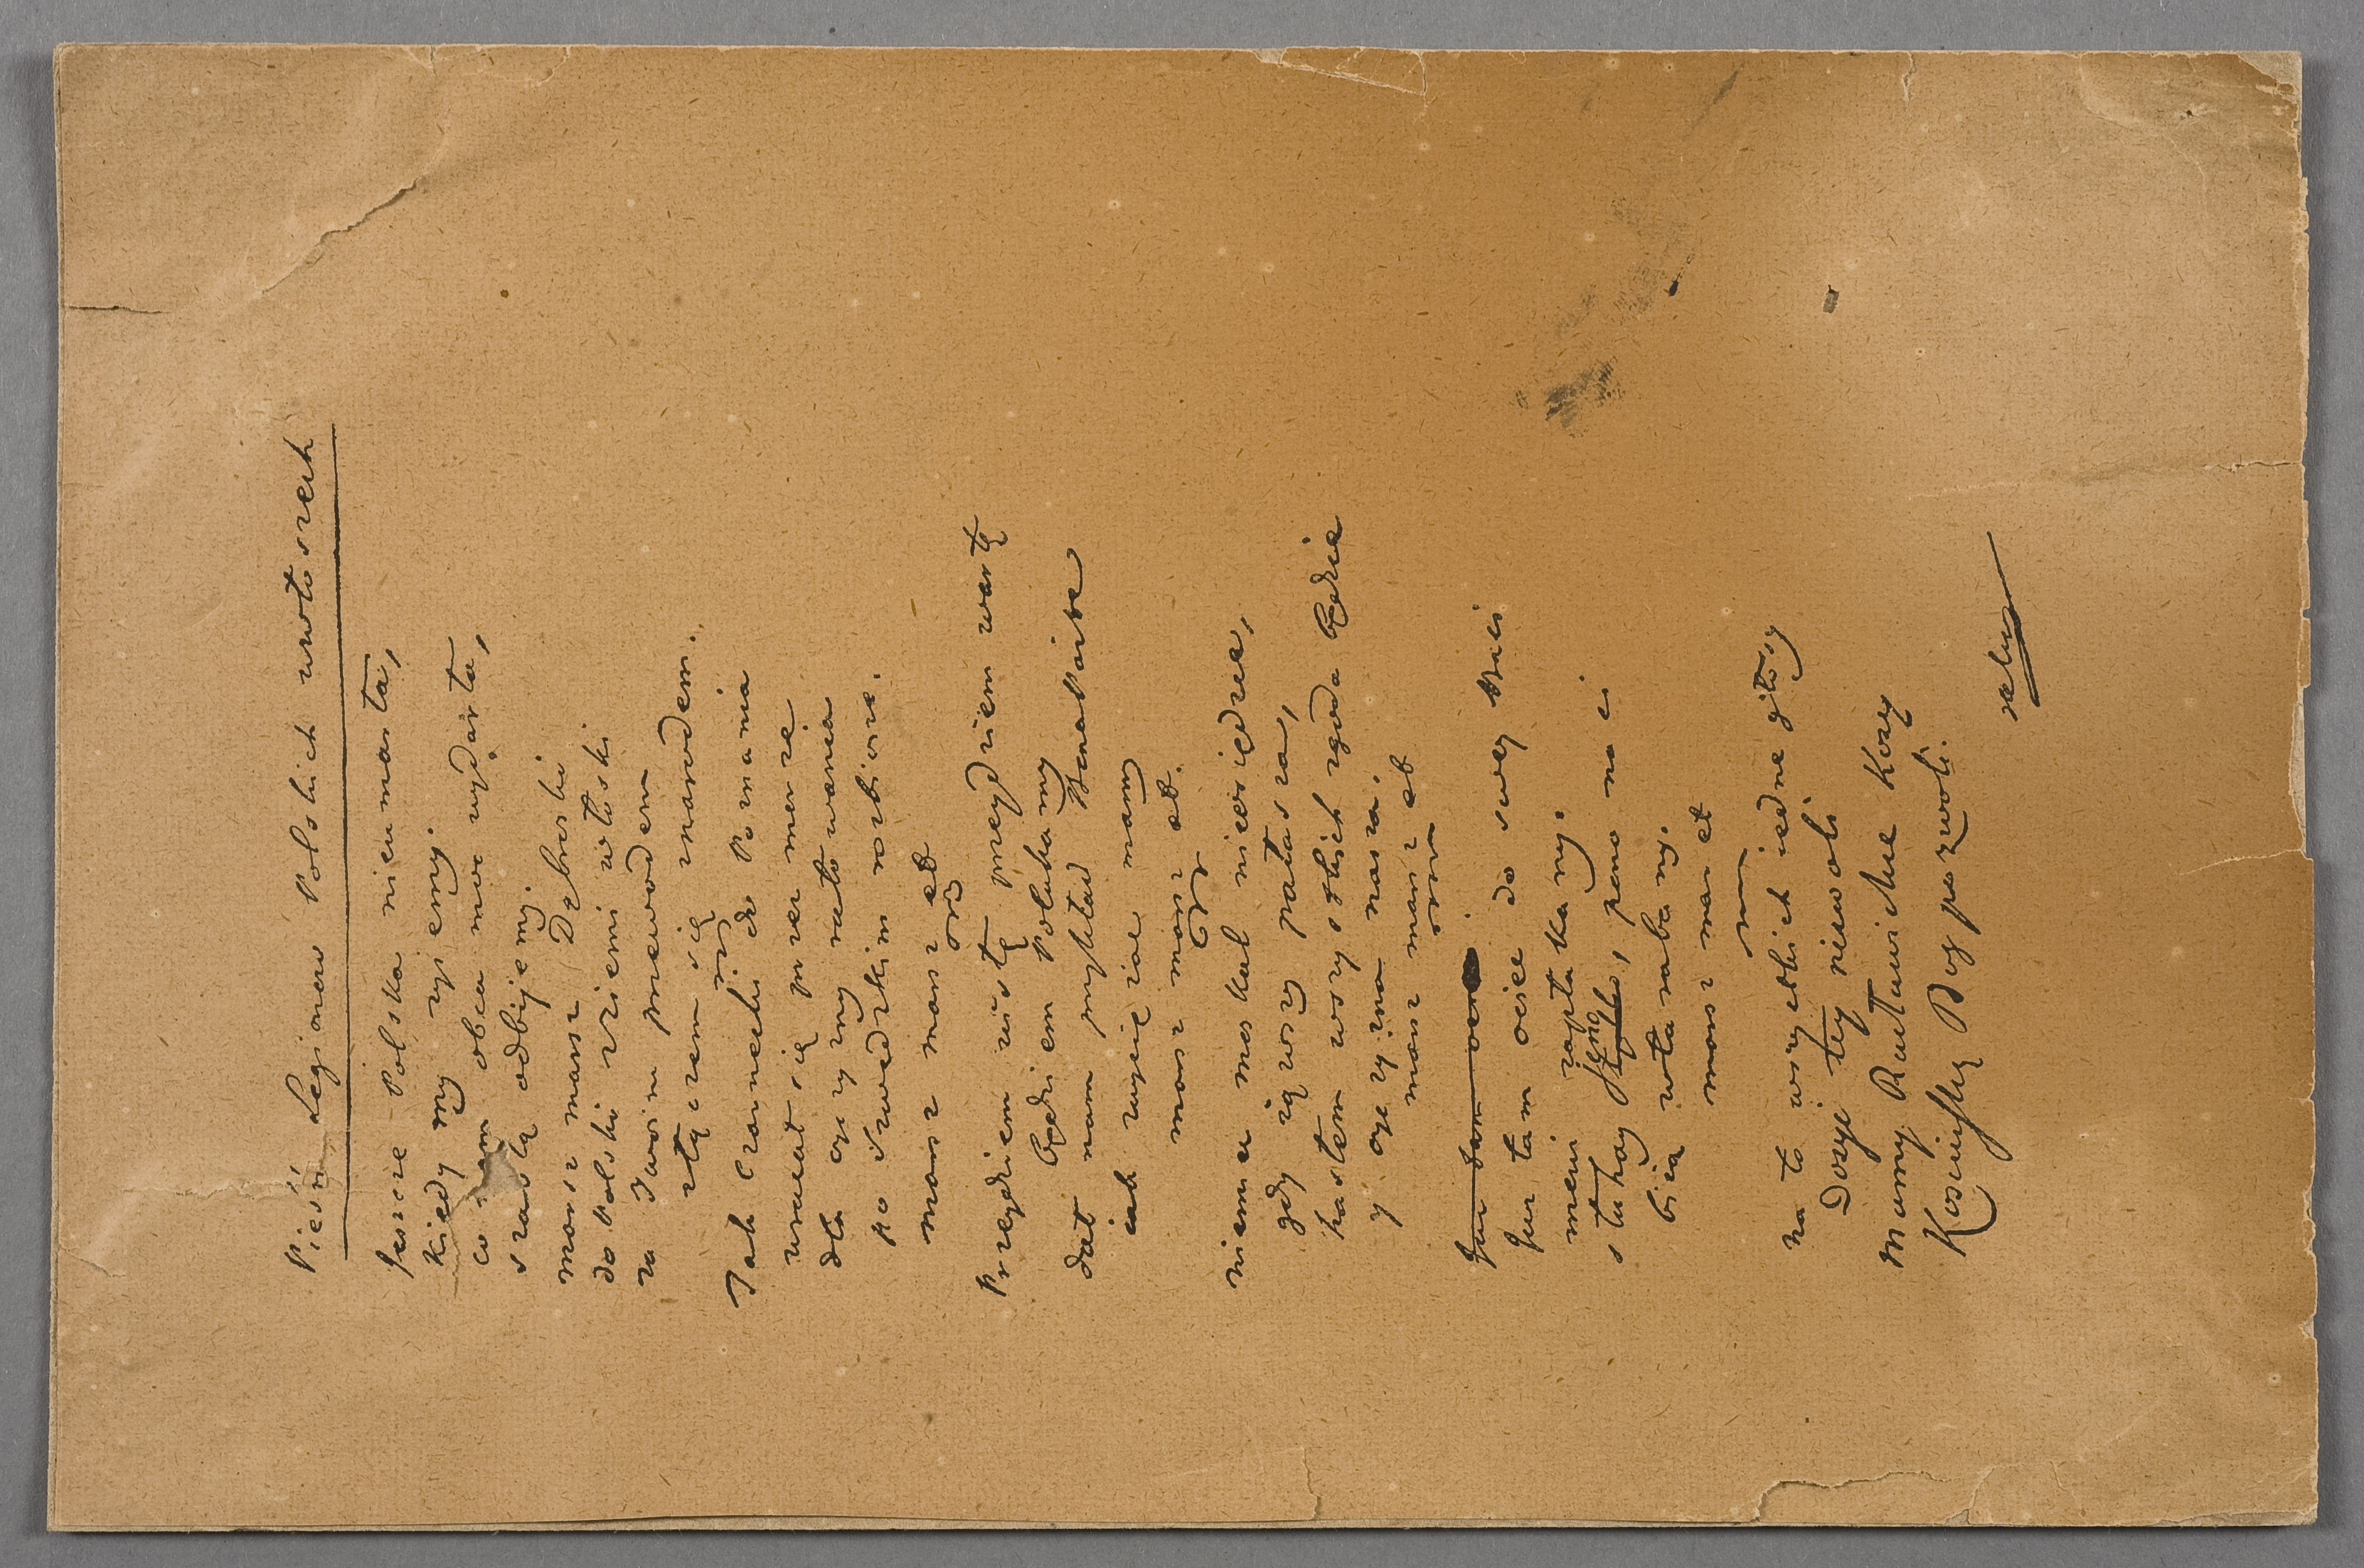 Pieśń Legionów Polskich we włoszech
Jeszcze Polska nie umarła,
kiedy my żyjemy.
co nam obca moc wydarła,
szablą odbijemy.
marsz marsz Dąbrowski
do Polski z ziemi włoski
za Twoim przewodem
złączem się z narodem.
Jak Czarnecki do Poznania
wracał się przez morze
dla ojczyzny ratowania
po szwedzkim rozbiorze.
marsz marsz etc
Przejdziem Wisłę przejdziem wartę
będziem Polakamy
dał nam przykład Bonaparte
jak zwyciężać mamy
marsz marsz etc.
niemiec moskal nieosiędzie,
gdy jąwszy pałasza,
hasłem wszystkich zgoda będzie
y ojczyzna nasza.
marsz marsz etc
Już tam ociec
Już tam ociec do swey Basi
mówi zapłakany.
słuchay jeno, pono nasi
bieią w tarabany.
marsz mar et
na to wszystkich iedne głosy
Dosyć tey niewoli
mamy Racławickie Kosy
Kosciuszkę Bóg pozwoli.